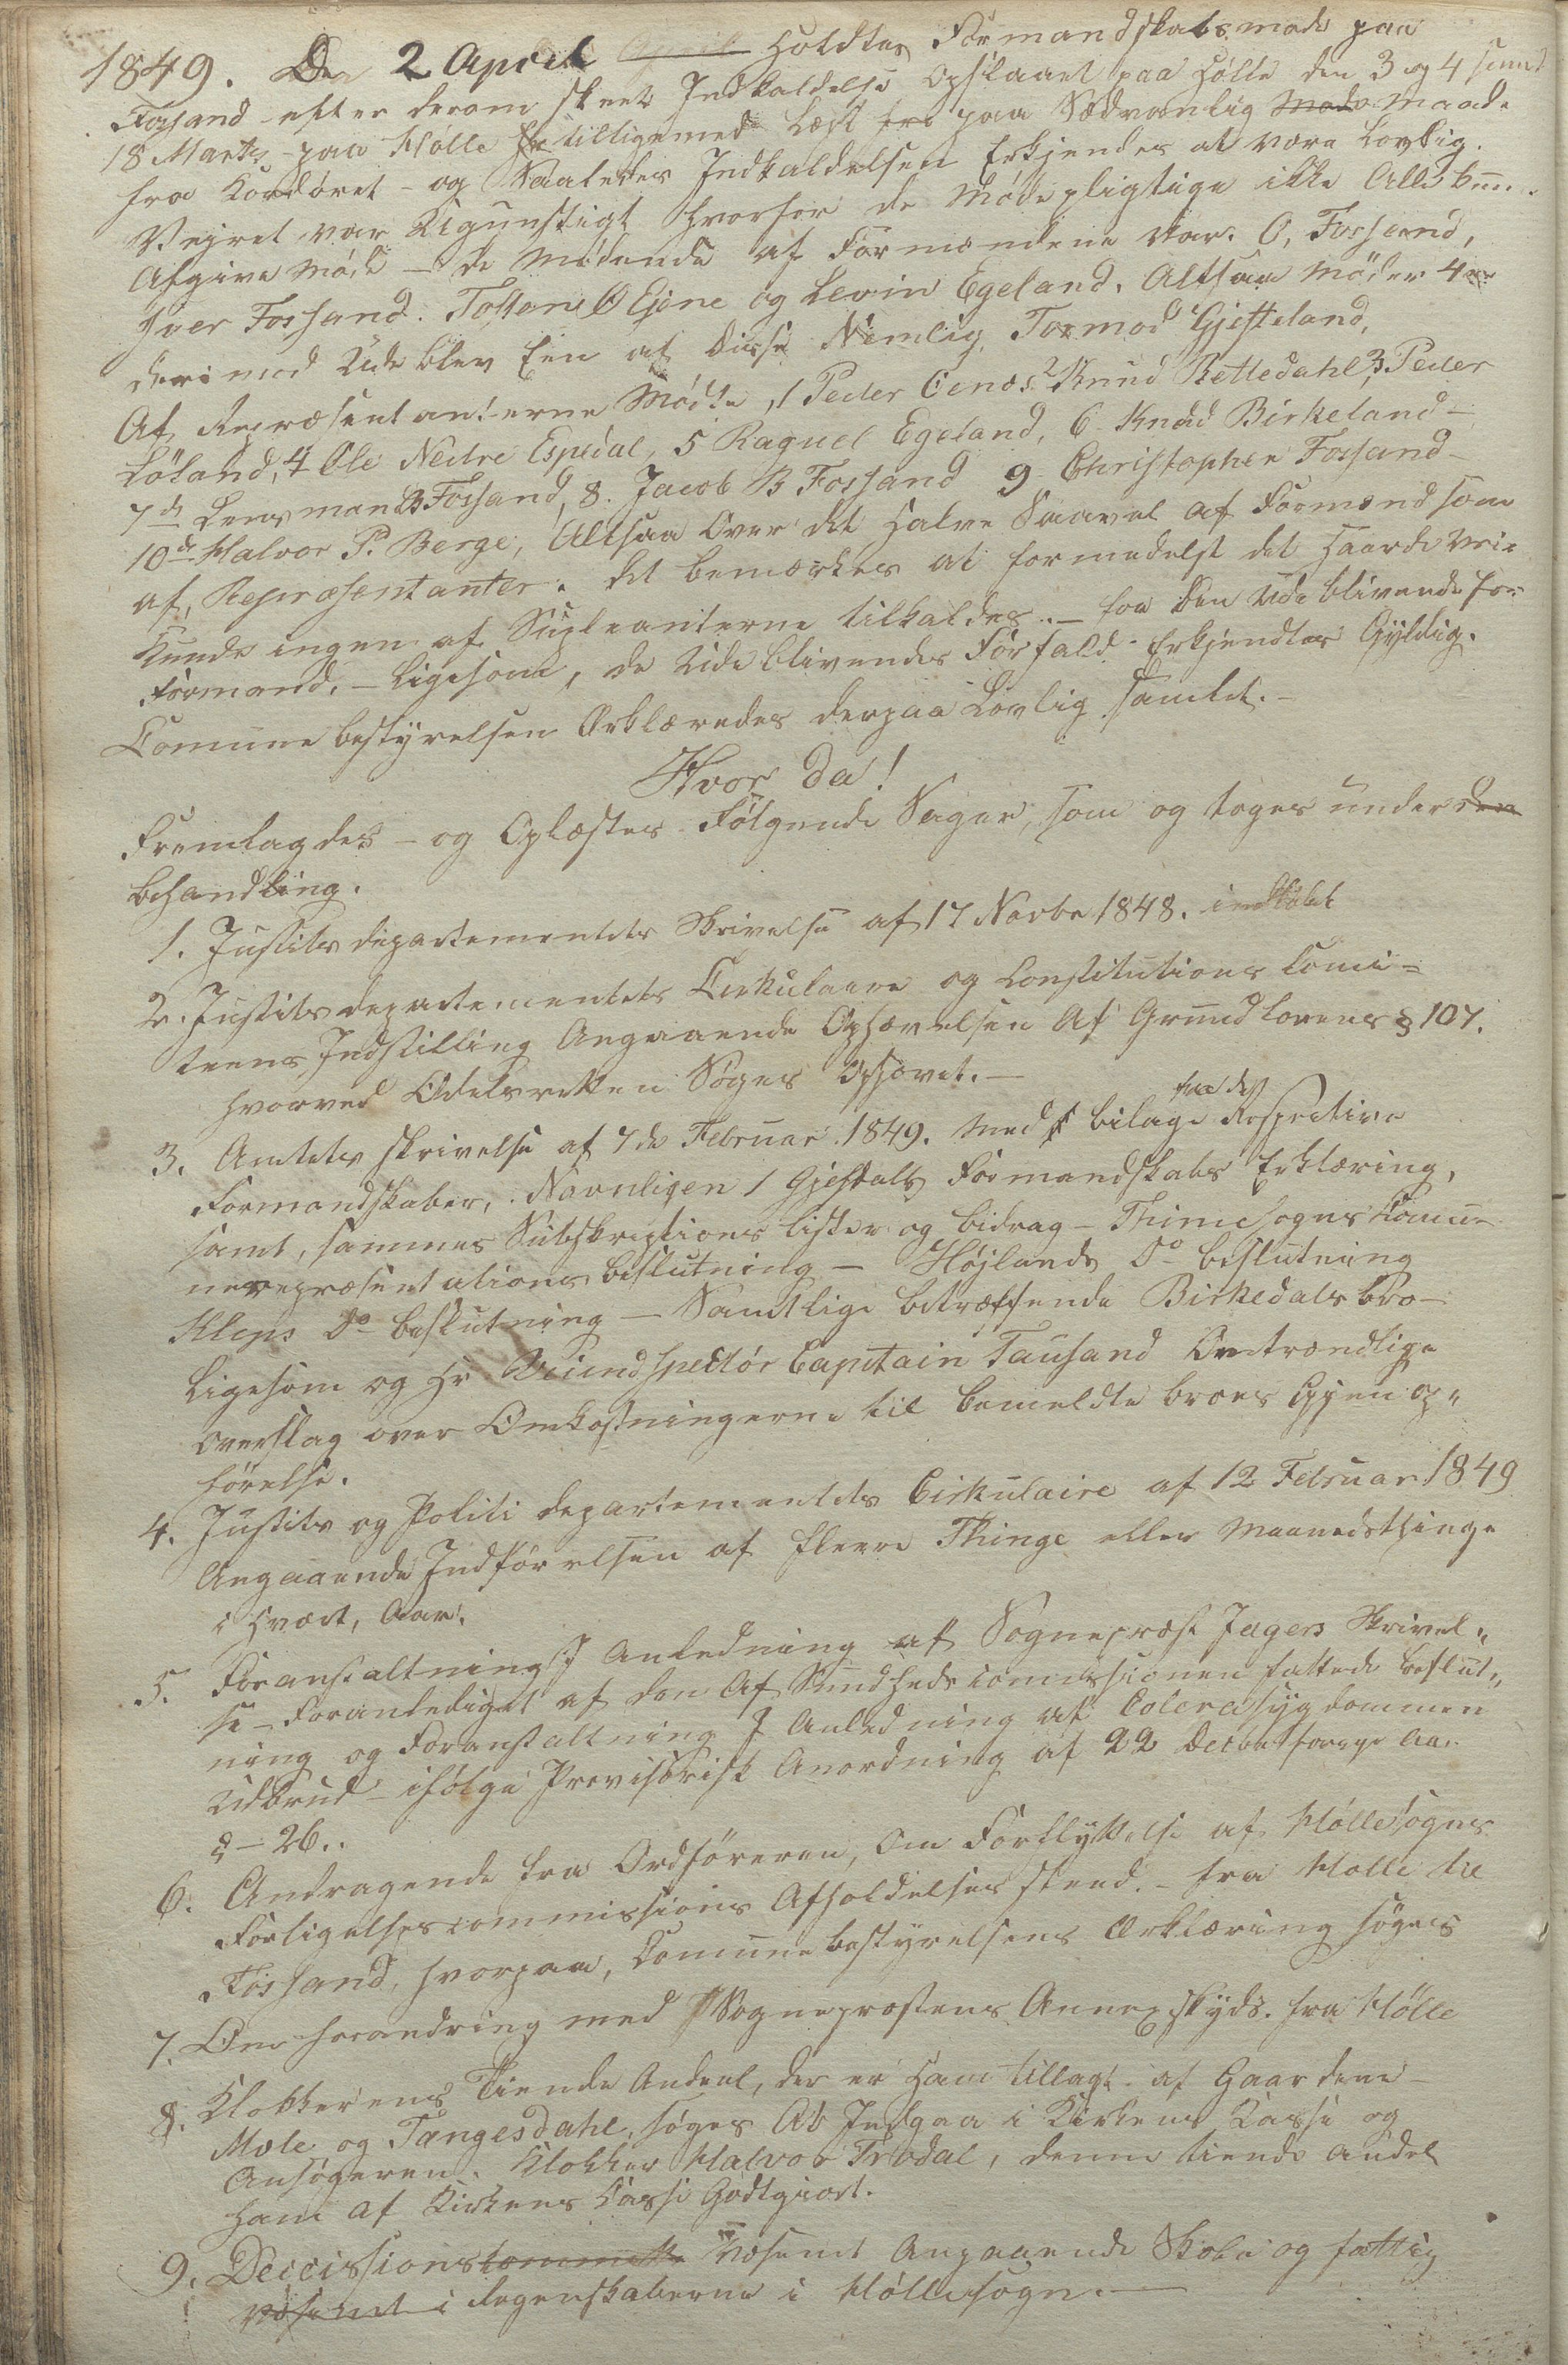 1849. Den 2 April April holdtes Formandskabsmøde paa
Fossand efter derom skeet Indkaldelse Opslaaet paa Hølle den 3 og 4 samt
18 Marts - paa Hølle tilligemed Læst fra paa Sædvanlig Made Maade
fra Kordøret - og Saaledes Indkaldelsen Erkjendes at være Lovlig.
Vejret var Ugunstigt hvorfor de Mødepligtige ikke Alle kun
Afgive Møde - de Mødende af Formændene var. O, Fossand,
Iver Fossand. Tosten Ø Eiene og Levin Egeland. Altsaa Møder 4re
derimod Udeblev Een af disse Nemlig Tormod Gjesteland,
Af Repræsentanterne Mødte, 1 Peder Oenæs 2 Knud Bettedahl, 3 Peder
Löland, 4 Ole Nedre Espedal, 5 Raguel Egeland, 6 Knud Birkeland -
7de Lensmand B Fossand, 8. Jacob B Fossand 9 Christopher Fossand -
10de Halvor P. Berge, Altsaa Over det Halve Saavel af Formænd som
af, Repræsentanter. det bemærkes at formedelst det Haarde Vei-
kunde ingen af Supleanterne tilkaldes. - for den Udeblivende For-
formand. - Ligesom, de Udeblivendes Forfald Erkjendtes Gyldig.
Comunebestyrelsen Erklæredes derpaa Lovlig samlet. -
Hvor da!
Fremlagdes - og Oplæstes Følgende Sager, som og toges under den
behandling.
1. Justitsdepartementets Skrivelse af 17 Novbr 1848.
2. Justitsdepartementets Cirkulaire og Constitutions Comi=
teens Indstilling Angaaende Ophævelsen Af Grundlovens § 107.
hvorved Odelsretten Søges Ophævet. -
3. Amtets skrivelse af 7de Februar 1849. med bilage fra de Respective
Formandskaber, Navnligen 1 Gjesdals Formandskabs Erklæring,
samt, sammes Subskriptions lister og bidrag - Thimesognes Komu-
nerepræsentations beslutning - Højlands Do beslutning
Kleps Do beslutning - Samtlige betræffende Birkedals bro -
Ligesom og Hr Veiinspectör Capitain Tausand Omtrændtlige
overslag over Omkostningerne til bemeldte broes Gjenop„
førelse.
4. Justits og Politi departementets Cirkulaire af 12 Februar 1849
Angaaende Indførelsen af fleere Thinge eller Maanedsthinge
i hvært, Aar.
5. Foranstaltning I Anledning af Sogneprest Jagers Skrivel„
se - Foranlediget af den Af Sundhedscommissionen fattede beslut„
ning og Foranstaltning I Anledning af Colerasygdommen
Udbrud - ifølge Provisorisk Anordning af 22 Decbr forrige Aar
§ - 26..
6. Andragende fra Ordføreren, Om Forflyttelse af Höllesogns
Forligelsescommissions Afholdelsessted. - fra Hölle til
Fossand, hvorpaa, Comunebestyrelsens Erklæring søges
7. Om forandring med Sogneprestens Annexskyds. fra Hölle
8. Klokkerens Tiende Andeel, der er Ham tillagt af Gaardene -
Mele og Tangesdahl, søges At Indgaa i Kirkens Kasse og
Ansøgeren. Klokker Halvor Trodal, denne tiende andel
ham af Kirkens Kasse Godtgiort.
9. Decissionskommitte Væsent Angaaende Skole og fattig
væsent i Regenskaberne i Höllesogn. -